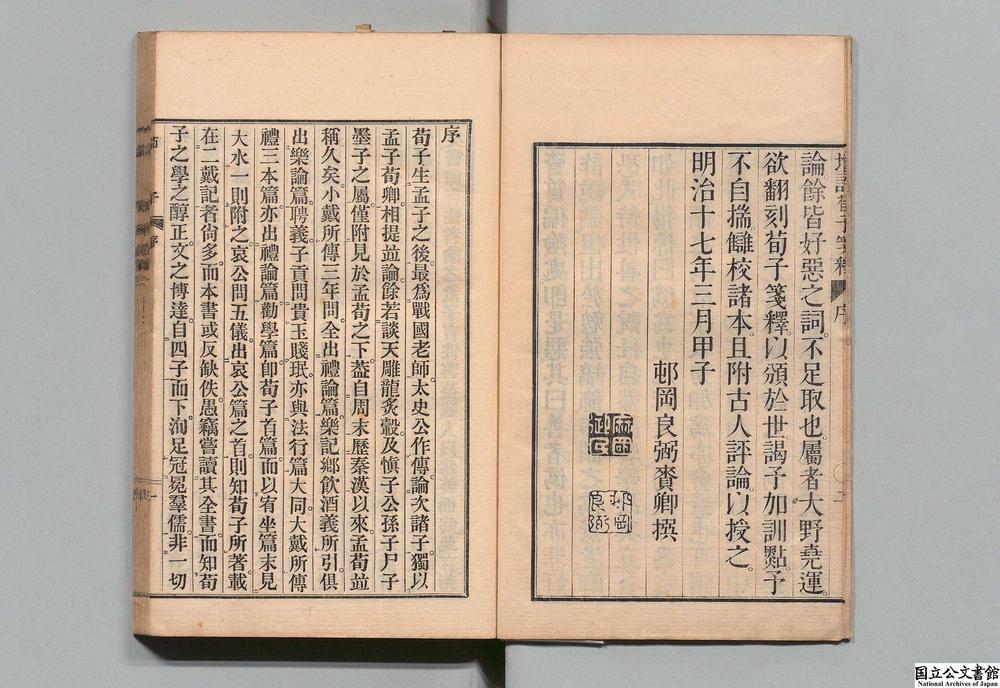 論餘皆好惡之詞。不足取也。屬者大野堯運。
欲翻刻荀子箋釋。以頒於世。謁予加訓點。予
不自揣。讎校諸本。且附古人評論。以授之。
明治十七年三月甲子
邨岡良弼賚卿撰
邨岡
良弼
序
荀子生孟子之後。最爲戰國老師。太史公作傳。論次諸子。獨以
孟子荀卿。相提竝論。餘若談天雕龍炙轂。及愼子公孫子尸子
墨子之屬。僅附見於孟荀之下。葢自周末歷秦漢以來。孟荀竝
稱久矣。小戴所傳三年問。全出禮論篇。樂記鄉飮酒義所引。俱
出樂論篇。聘義子貢問貴玉賤珉。亦與法行篇大同。大戴所傳
禮三本篇。亦出禮論篇。勸學篇。卽荀子首篇。而以宥坐篇末見
大水一則附之。哀公問五儀。出哀公篇之首。則知荀子所著。載
在二戴記者尙多。而本書或反缺佚。愚竊嘗讀其全書。而知荀
子之學之醇正。文之博達。自四子而下。洵足冠冕羣儒。非一切
国立公文書館
National Archives of Japan